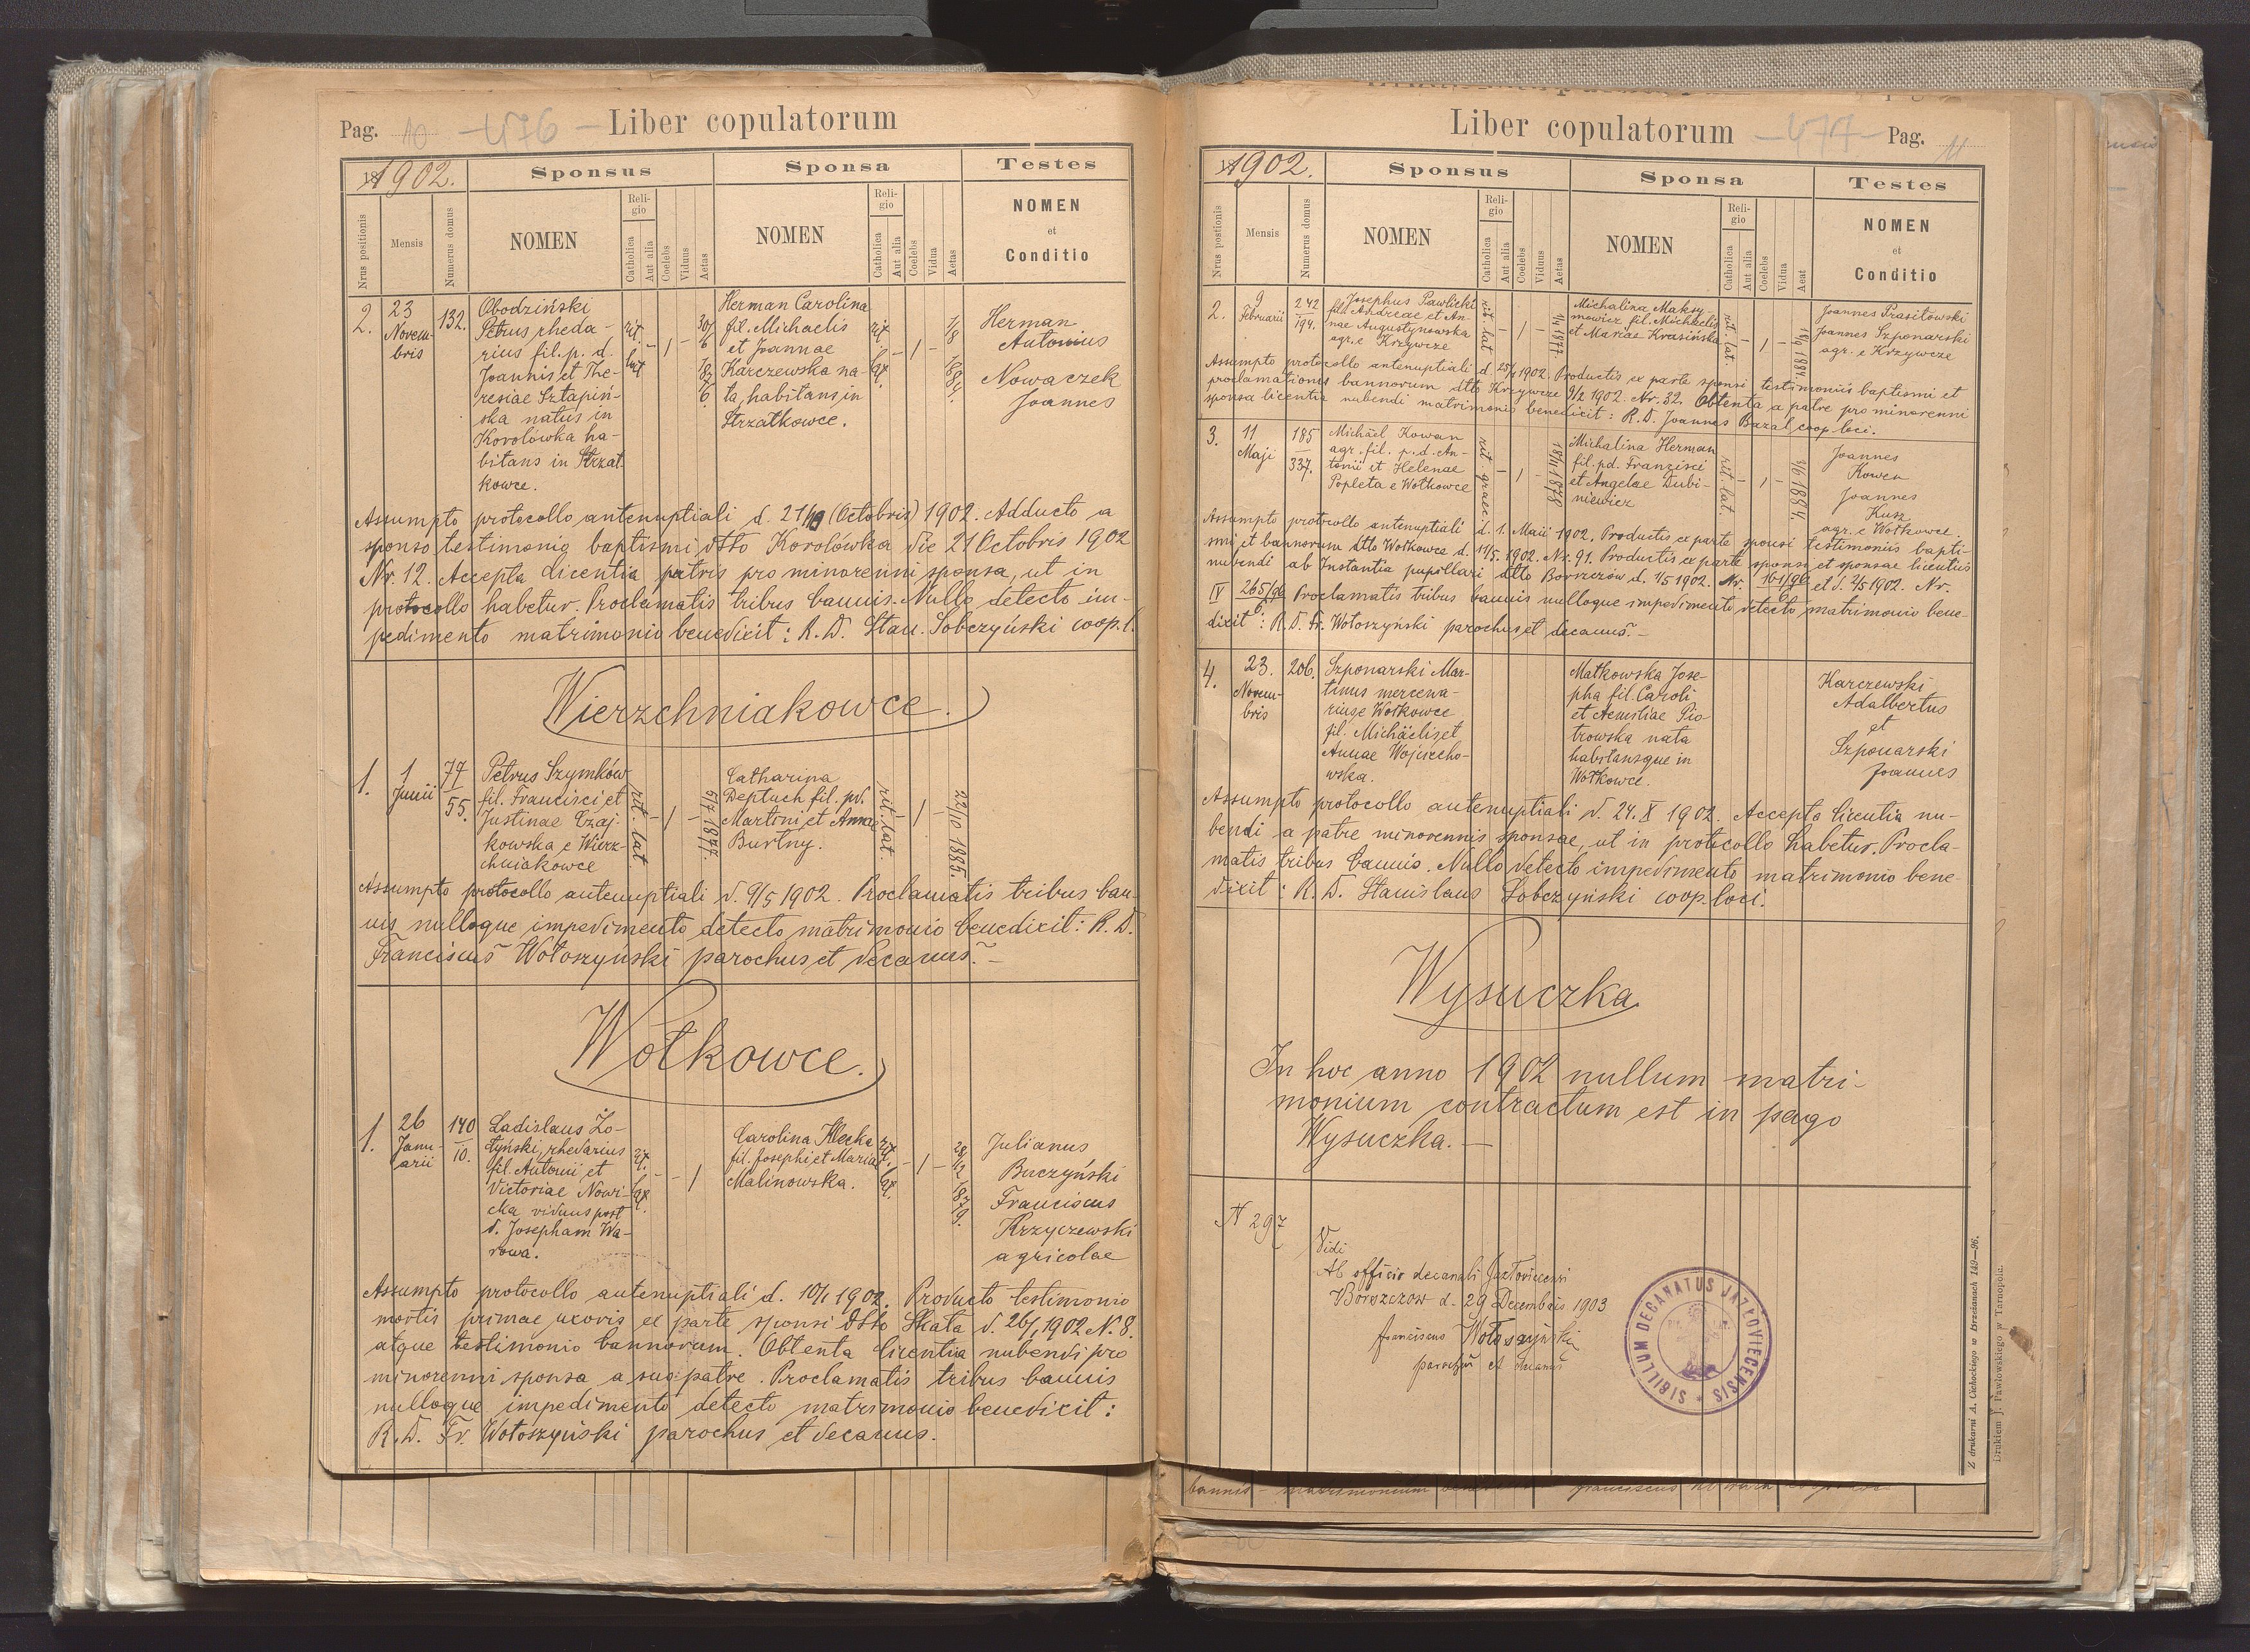 Pag. 10 -476- Liber copulatorum
1902.
Sponsus
Sponsa
Testes
Nrus positionis
Mensis
Numerus domus
NOMEN
Religio
Catholica
Aut alia
Coelebs
Viduus
Aetas
NOMEN
Religio
Catholica
Aut alia
Coelebs
Vidua
Aetas
NOMEN
et
Conditio
2.
23
Novem-
bris
132.
Obodziński
Petrus rheda-
rius fil. p. d.
Joannis et The-
resiae Sztapiń-
ska natus in
Korolówka ha-
bitans in Strzał-
kowce.
rit.
lat
-
1
-
30/6
1876.
Herman Carolina
fil. Michaelis
et Joannae
Karczewska na-
ta, habitans in
Strzałkowce.
rit
lat.
-
1
-
1/8
188
Herman
Antonius
Nowaczek
Joannes
Assumpto protocollo antenuptiali d. 21/10 (Octobris) 1902. Adducto a
sponso testimonio baptismi dtto Korolówka die 21 Octobris 1902
Nr. 12. Accepta licentia patris pro minorenni sponsa, ut in
protocollo habetur. Proclamatis tribus bannis. Nullo detecto im-
pedimento matrimonio benedixit: R. D. Stan. Sobczyński coop. l.
Wierzchniakowce.
1.
1
Junii
77
55.
Petrus Szymków
fil. Francisci et
Justinae Czaj-
kowska e Wierz-
chniakowce
rit. lat.
-
1
-
5/7 1877.
Catharina
Deptuch fil. pd.
Martini et Annae
Burtny.
rit. lat.
1
-
22/10 1885.
Assumpto protocollo antenuptiali d. 9/5 1902. Proclamatis tribus ban-
nis nulloque impedimento detecto matrimonio benedixit: R. D.
Franciscus Wołoszyński parochus et decanus. -
Wołkowce.
1.
26
Janu-
arii
140
10.
Ladislaus Żo-
łyński, rhedarius
fil. Antonii et
Victoriae Nowi-
cka viduus post
d. Josepham Wa-
rowa.
rit.
lat.
-
-
1
Carolina Klecka
fil. Josephi et Mariae
Malinowska.
rit.
lat.
-
1
-
28/12
1879.
Julianus
Buczyński
Franciscus
Krzyczewski
agricolae
Assumpto protocollo antenuptiali d. 10/1 1902. Producto testimonio
mortis primae uxoris ex parte sponsi dtto Skała d. 26/1 1902 N. 8.
atque testimonio bannorum. Obtenta licentia nubendi pro
minorenni sponsa a suo patre. Proclamatis tribus bannis
nulloque impedimento detecto matrimonio benedixit:
R. D. Fr. Wołoszyński parochus et decanus.
Liber copulatorum -477- Pag. 11
1902.
Sponsus
Sponsa
Testes
Nrus postionis
Mensis
Numerus domus
NOMEN
Religio
Catholica
Aut alia
Coelebs
Viduus
Aetas
NOMEN
Religio
Catholica
Aut alia
Coelebs
Vidua
Aeat
NOMEN
et
Conditio
2.
9
Februarii
242
194.
Josephus Pawlicki
fil. Andreae et An-
nae Augustynowska
agr. e Krzywcze
rit. lat
-
1
-
1877.
Michalina Maksy
mowicz fil. Michaelis
et Mariae Krasińska
rit. lat.
-
1
-
1884.
Joannes Prasitowski
Joannes Szponarski
agr. e Krzywcze
Assumpto protocollo antenuptiali d. 25/1 1902. Productis ex parte sponsi testimoniis baptismi et
proclamationis bannorum dtto Krzywcze 9/2 1902. Nr. 32. Obtenta a patre pro minorenni
sponsa licentia nubendi matrimonio benedicit: R. D. Joannes Bazal coop. loci.
3.
11
Maji
185
337.
Michäel Kowan
agr. fil. p. d. An-
tonii et Helenae
Popleta e Wołkowce
rit. graec.
-
1
-
18/11 1878
Michalina Herman
fil. pd. Franzisci
et Angelae Dubi-
niewicz
rit. lat.
-
1
-
3/6 1884.
Joannes
Kowen
Joannes
Kusz
agr. e Wołkowce.
Assumpto protocollo antenuptiali d. 1. Maii 1902. Productis ex parte sponsi testimoniis bapti-
smi et bannorum dtto Wołkowce d. 11/5 1902. Nr. 91. Productis ex parte sponsi et sponsae licentiis
nubendi ab Instantia pupillari dtto Borszczów d. 1/5 1902. Nr. 161/96 et d. 2/5 1902. Nr.
IV 265/96 Proclamatis tribus bannis nulloque impedimento detecto matrimonio bene-
dixit: R. D. Fr. Wołoszyński parochus et decanus. -
4.
23.
Novem-
bris
206.
Szponarski Mar-
tinus mercena-
rius e Wołkowce
fil. Michäelis et
Annae Wojciecho-
wska.
Małkowska Jose-
pha fil. Caroli
et Aemiliae Pio-
trowska nata
habitansque in
Wołkowce.
Karczewski
Adalbertus
et
Szponarski
Joannes
Assumpto protocollo antenuptiali d. 24. X 1902. Accepta licentia nu-
bendi a patre minorennis sponsae, ut in protocollo habetur. Procla-
matis tribus bannis. Nullo detecto impedimento matrimonio bene-
dixit: R. D. Stanislaus Sobczyński coop. loci.
Wysuczka
In hoc anno 1902 nullum matri-
monium contractum est in pago
Wysuczka. -
N 297
Vidi
Ab officio decanali Jazłoviecensi
Borszczow d. 29 Decembris 1903
Franciscus Wołoszyński
parochus et decanus
SIGILLUM DECANATUS JAZŁOVIECENSIS
Z drukarni A. Cichockiego w Brzeżanach 149—96.
Drukiem J. Pawłowskiego w Tarnopolu.
bannis - matrimonium